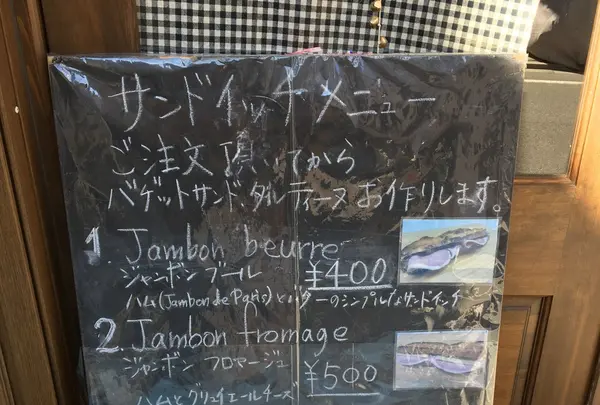 サンドイッチメニュー
ご注文頂いてから
バゲットサンド、タルティーヌお作りします。
1. Jambon beurre
ジャンボン ブール ¥400
ハム(Jambon de Paris)とバターのシンプルなサンドイッチ
2. Jambon fromage
ジャンボン フロマージュ ¥500
ハムとグリュイエールチーズ